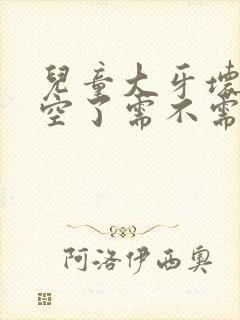 兒童大牙壞
空了需不需
阿洛伊西奧